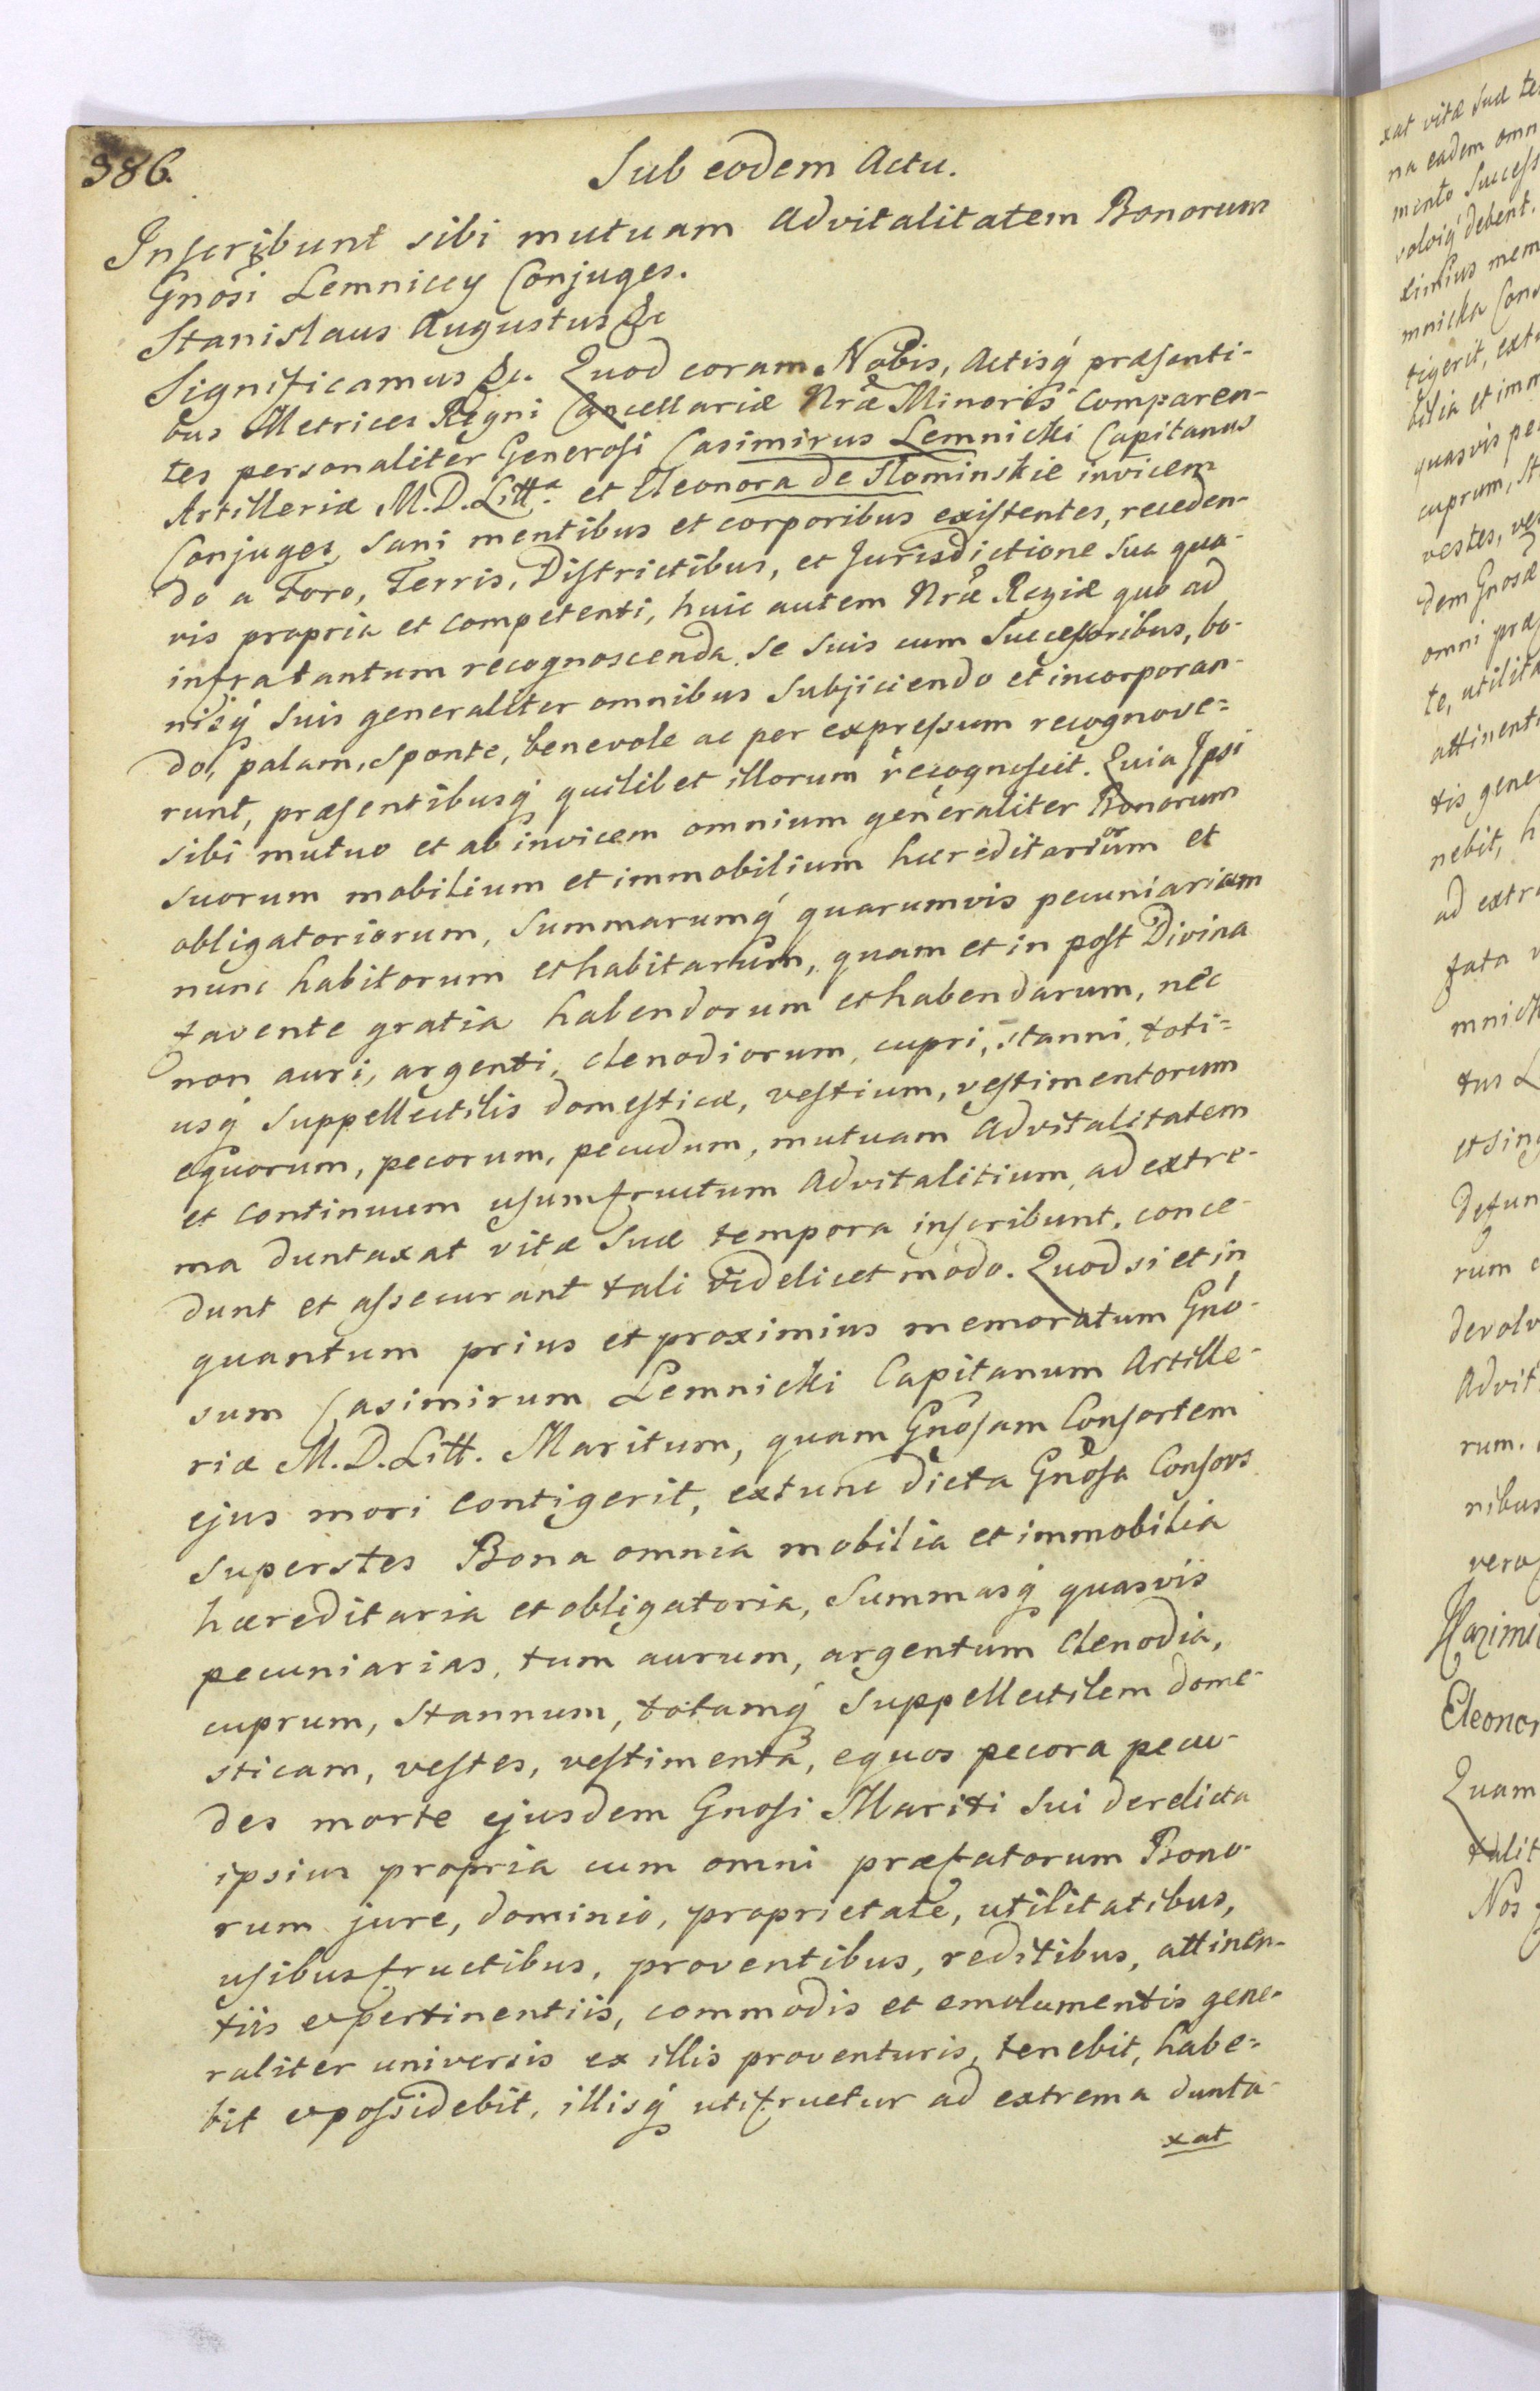 386.
Sub eodem Actu.
Inscribunt sibi mutuam Advitalitatem Bonorum
Gnosi Lemniccy Conjuges.
Stanislaus Augustus &c
Significamus &c. Quod coram Nobis, Actisq́ præsenti-
bus Metrices Regni Cancellariæ Nræ Minoris Comparen-
tes personaliter Generosi Casimirus Lemnicki Capitanus
Artilleriæ M.D.Litt.ᵃ et Eleonora de Słominskie invicem
Conjuges, sani mentibus et corporibus existentes, receden-
do a Foro, Terris, Districtibus, et Jurisdictione sua qua-
vis propria et competenti, huic autem Nræ Regiæ quo ad
infra tantum recognoscenda, se suis cum Successoribus, bo-
nisq́ suis generaliter omnibus subjiciendo et incorporan-
do, palam, sponte, benevole ac per expressum recognove=
runt, præsentibusq́ quilibet illorum recognoscit. Quia Ipsi
sibi mutuo et ab invicem omnium generaliter Bonorum
suorum mobilium et immobilium hæreditariorum et
obligatoriorum, summarumq́ quarumvis pecuniariam
nunc habitorum et habitarum, quam et in post Divina
favente gratia habendorum et habendarum, nec
non auri, argenti, clenodiorum, cupri, stanni, toti=
usq́ suppellectilis domesticæ, vestium, vestimentorum
equorum, pecorum, pecudum, mutuam Advitalitatem
et continuum usumfructum Advitalitium, ad extre-
ma duntaxat vitæ suæ tempora inscribunt, conce-
dunt et assecurant tali videlicet modo. Quod si et in
quantum prius et proximius memoratum Gno-
sum Casimirum Lemnicki Capitanum Artille-
riæ M.D.Litt. Maritum, quam Gnosam Consortem
ejus mori contigerit, extunc dicta Gnosa Consors
superstes Bona omnia mobilia et immobilia
hæreditaria et obligatoria, Summasq́ quasvis
pecuniarias, tum aurum, argentum clenodia,
cuprum, stannum, totamq́ suppellectilem dome-
sticam, vestes, vestimenta, equos pecora pecu-
des morte ejusdem Gnosi Mariti sui derelicta
ipsius propria cum omni præfatorum Bono-
rum jure, dominio, proprietate, utilitatibus,
usibusfructibus, proventibus, reditibus, attinen-
tiis et pertinentiis, commodis et emolumentis gene-
raliter universis ex illis proventuris, tenebit, habe=
bit et possidebit, illisq́ utifruetur ad extrema dunta-
xat
xat vitæ suæ te
na eadem omn
mento success
volviq́ debent.
ximius mem
mnicka Cons
tigerit, extu
bilia et imm
quasvis pe
cuprum, st
vestes, ve
dem Gnosæ
omni præ
te, utilita
attinenti
tis gene
nebit, h
ad extre
fata
mnick
tus L
et sing
defun
rum
devolv
Advit
rum.
nibus
vero
Kazimi
Eleonor
Quam
talit
Nos